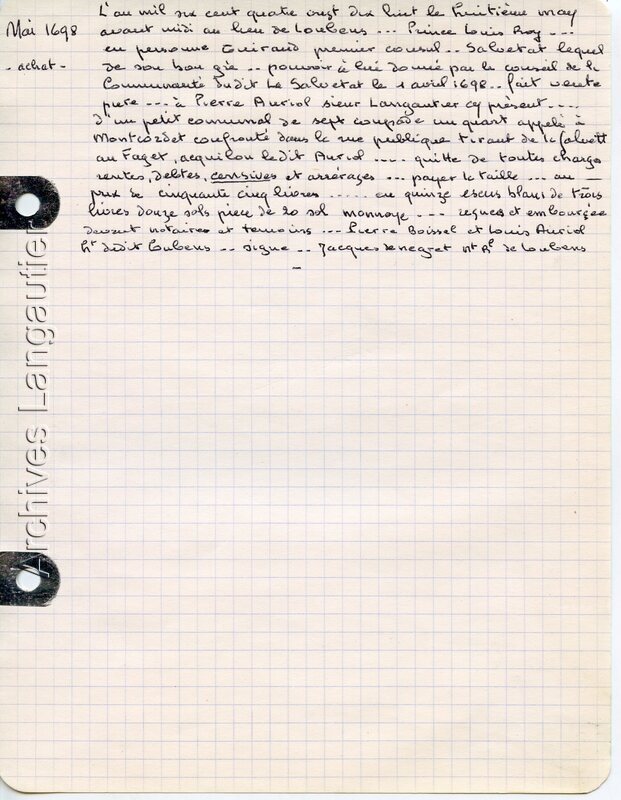 Mai 1698
- achat -
L'an mil six cent quatre vingt dix huit le huitième may
avant midi au lieu de Loubens --- Prince Louis Roy ---
en personne Guiraud premier consul .. Salvetat lequel
de son bon gré .. pouvoir à lui donné par le conseil de la
Communauté dudit La Salvetat le 1 avril 1698 .. fait vente
pure --- à Pierre Auriol sieur Langautier cy présent ....
d'un petit communal de sept coupade un quart appelé à
Montcordet confronté dans la rue publique tirant de la Salvett
au Faget, acquilon ledit Auriol .... quitte de toutes charges
rentes, debtes, censives et arrérages ... payer la taille ... au —
prix de cinquante cinq livres ...... en quinze escus blancs de trois
livres douze sols piece de 20 sol monnoye --- reçues et embourçee
devant notaires et temoins --- Pierre Boissel et Louis Auriol
ht dudit Loubens .. signe .. Jacques Denegret nt Rl de Loubens
-
Archives Langautier